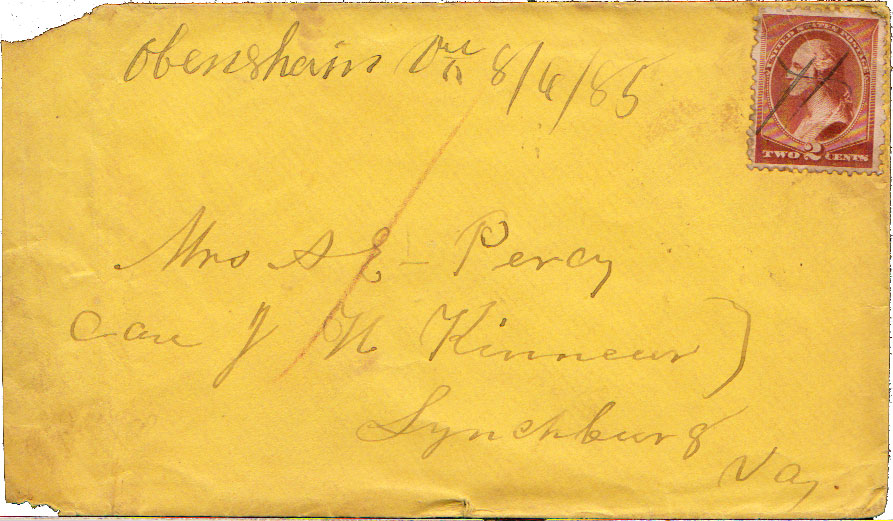 Obenshain Va 8/6/85
UNITED STATES POSTAGE
TWO 2 CENTS
Mrs A E Percy
Care J H Kinnear
Lynchburg
Va.